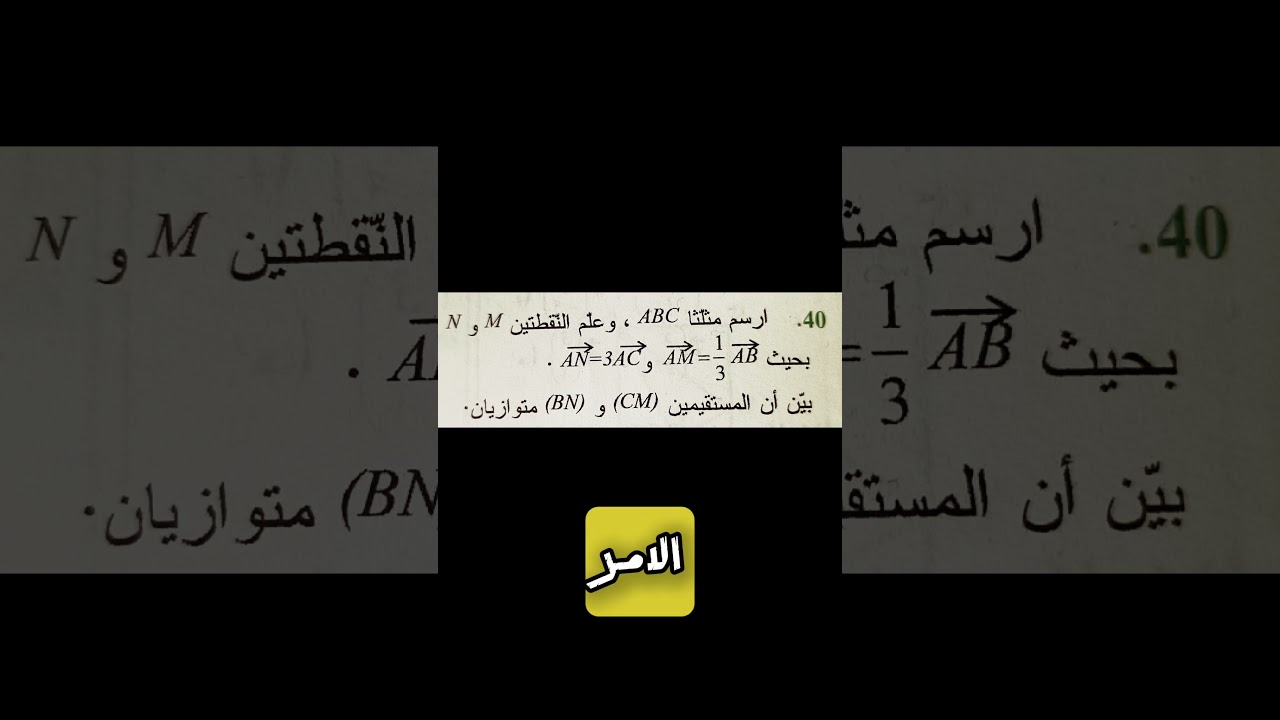 40. ارسم مثلّثا ABC ، وعلّم النّقطتين M و N
بحيث $\overrightarrow{AM}=\frac{1}{3}\overrightarrow{AB}$ و $\overrightarrow{AN}=3\overrightarrow{AC}$ .
بيّن أن المستقيمين (CM) و (BN) متوازيان.
الامر